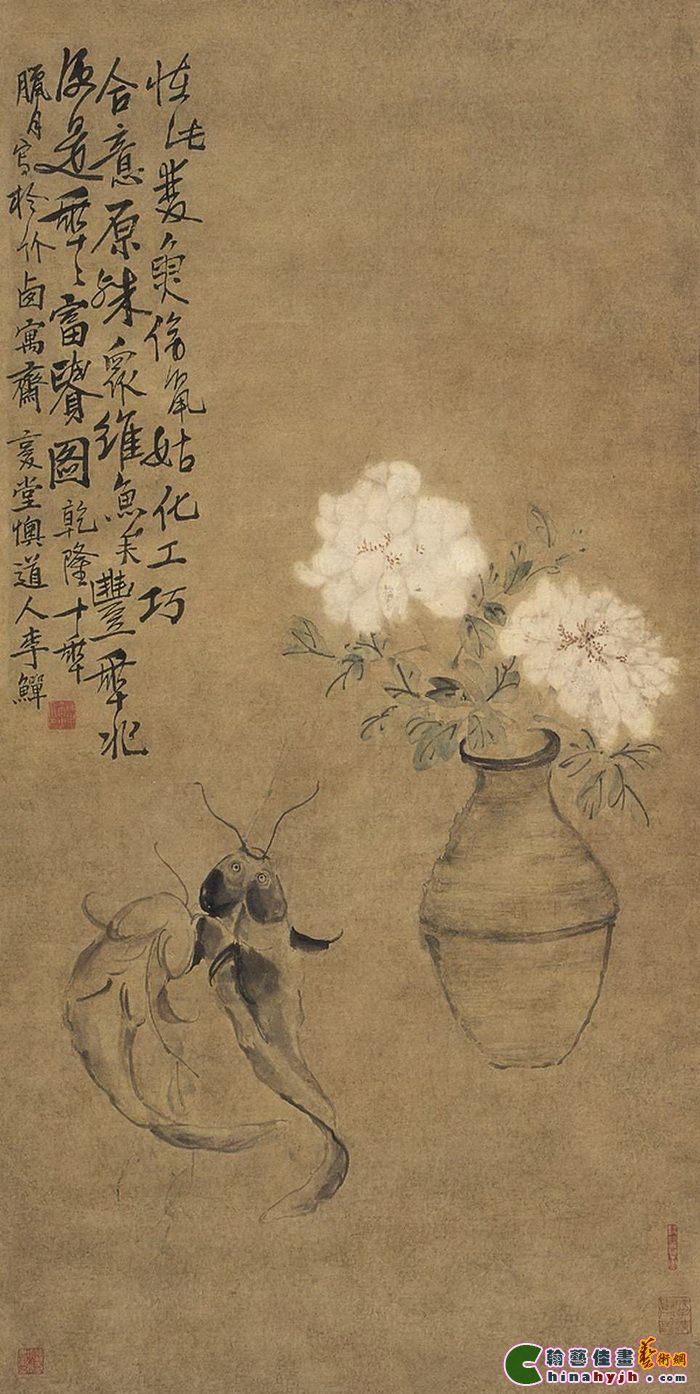 怪雙魚傍鼠姑化工巧
合意原殊眾維魚矣豐年兆
便是年〻富貴圖 乾隆十年
臘月寫於竹西寓齋 復堂懊道人李鱓
翰藝佳畫藝術網
Chinahyjh.com